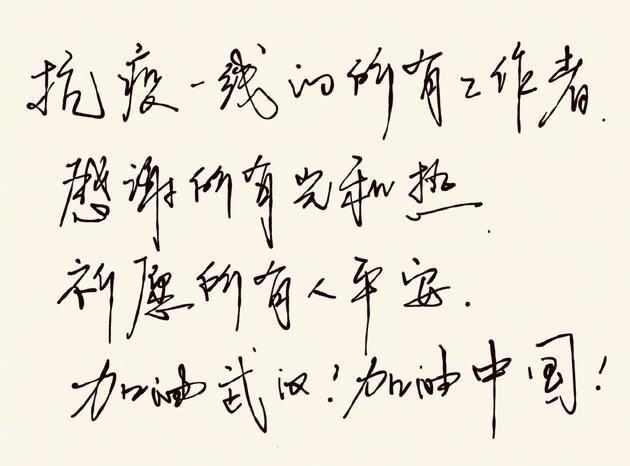 抗疫一线的所有工作者.
感谢所有光和热.
祈愿所有人平安.
加油武汉!加油中国!